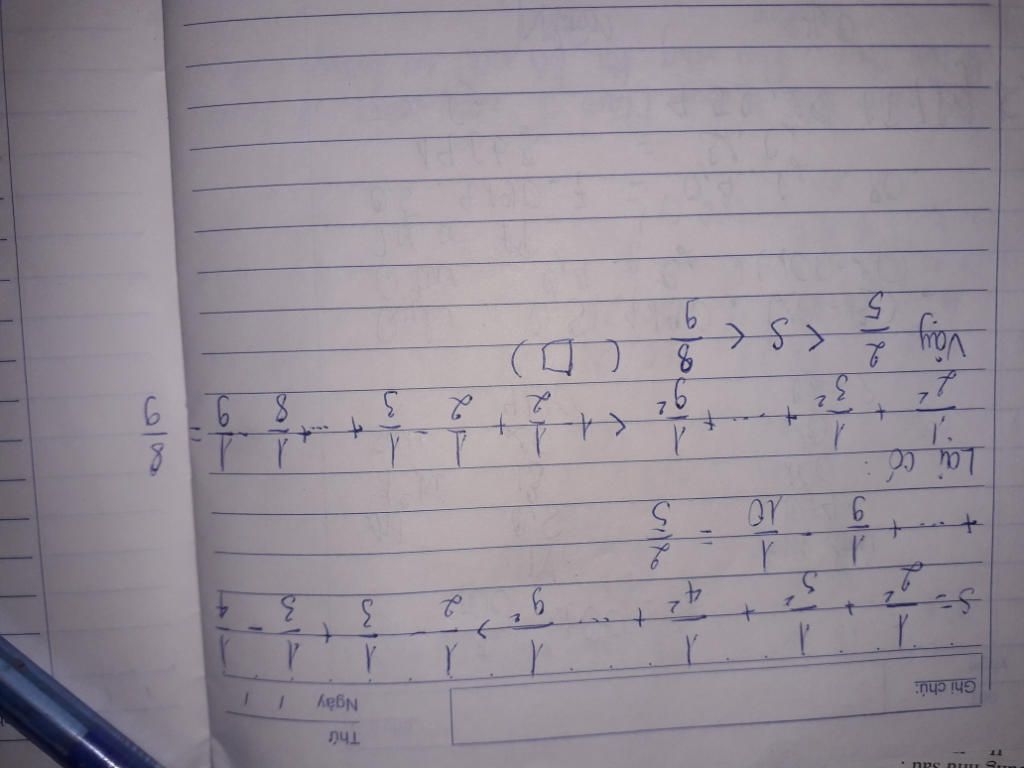 ang như sau :
Thứ
Ngày / /
Ghi chú:
S = 1/2² + 1/3² + 1/4² + ... 1/9² > 1/2 - 1/3 + 1/3 - 1/4
+ ... + 1/9 - 1/10 = 2/5
Lại có :
1/2² + 1/3² + ... + 1/9² < 1 - 1/2 + 1/2 - 1/3 + ... + 1/8 - 1/9 = 8/9
Vậy 2/5 < S < 8/9 ( □ )